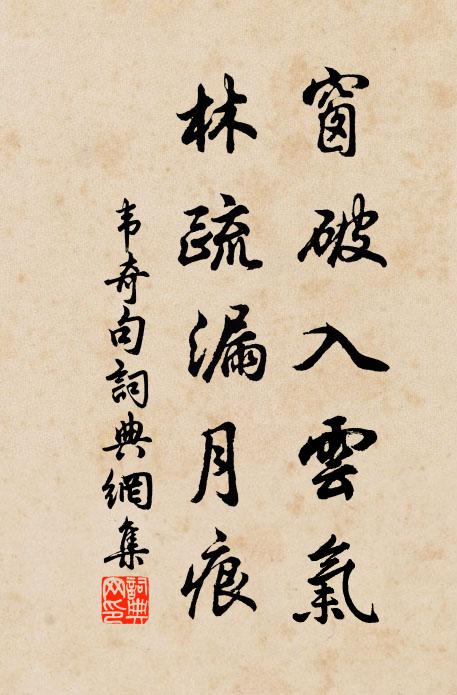 窗破入雲氣
林疏漏月痕
韦奇句詞典網集
詞典网印